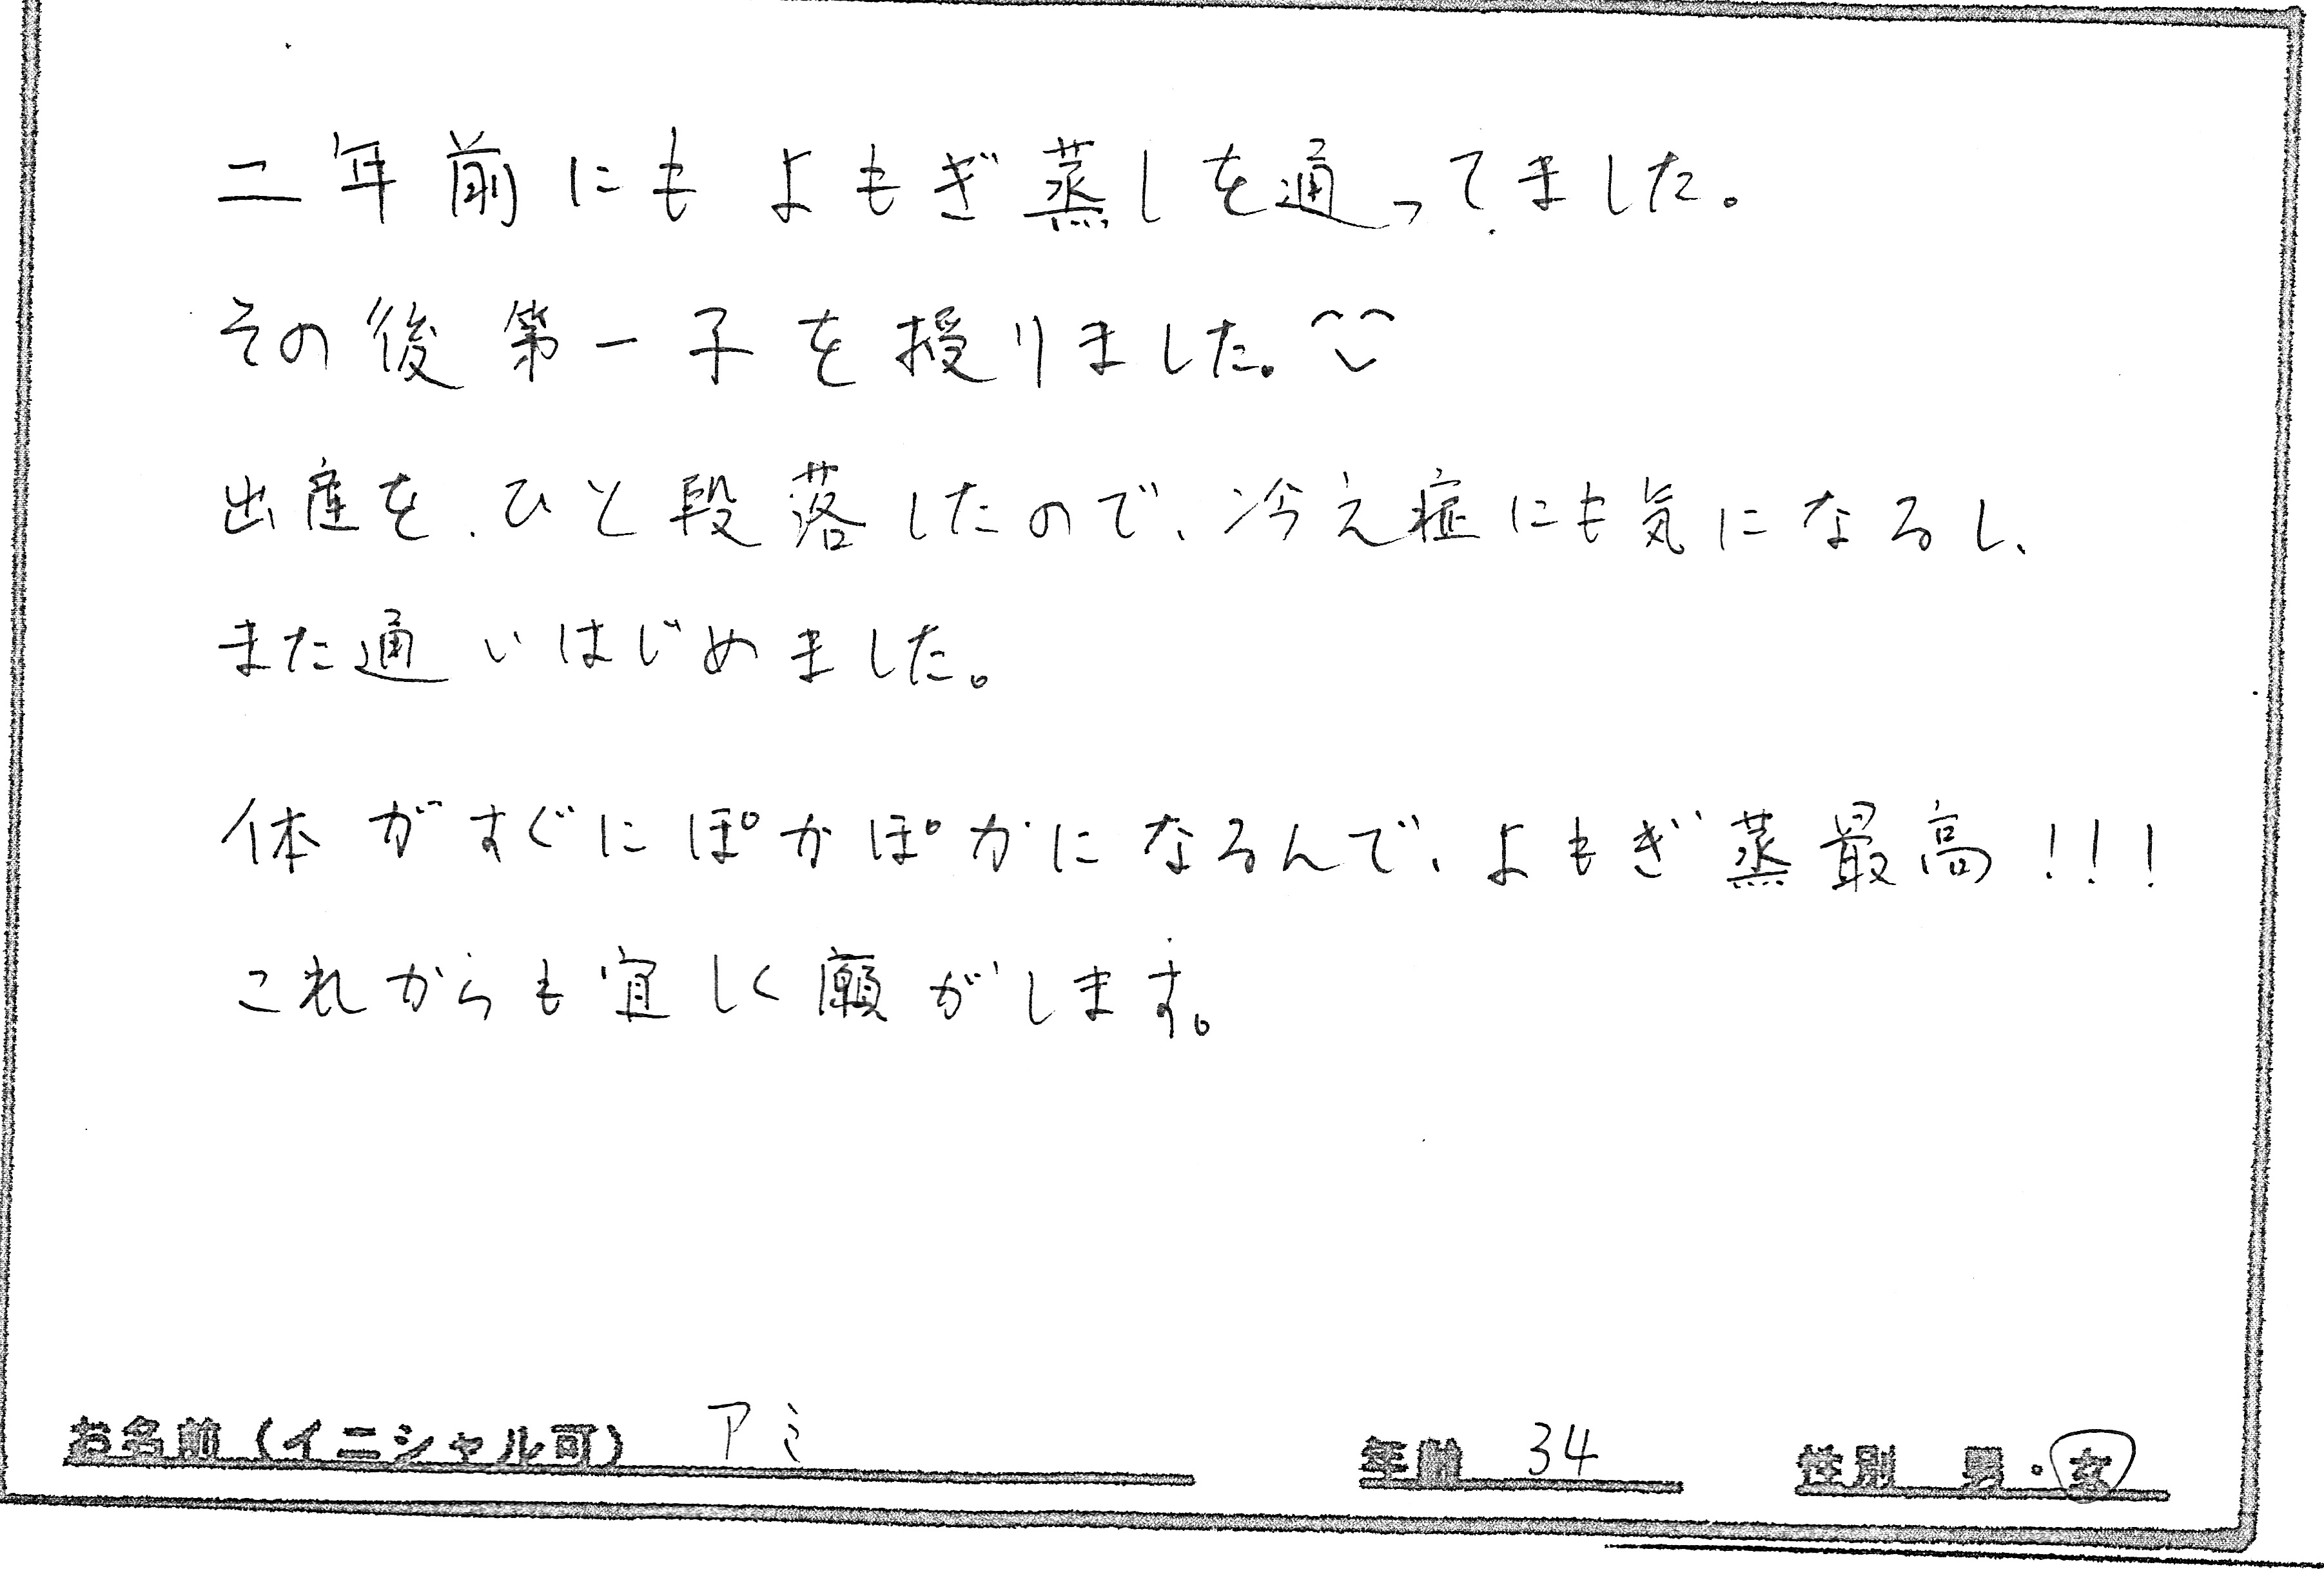 二年前にもよもぎ蒸しを通ってました。
その後第一子を授りました。
出産を、ひと段落したので、冷え症にも気になるし、
また通いはじめました。
体がすぐにぽかぽかになるんで、よもぎ蒸最高!!!
これからも宜しく願がします。
お名前(イニシャル可) アミ 年齢 34 性別 男・女